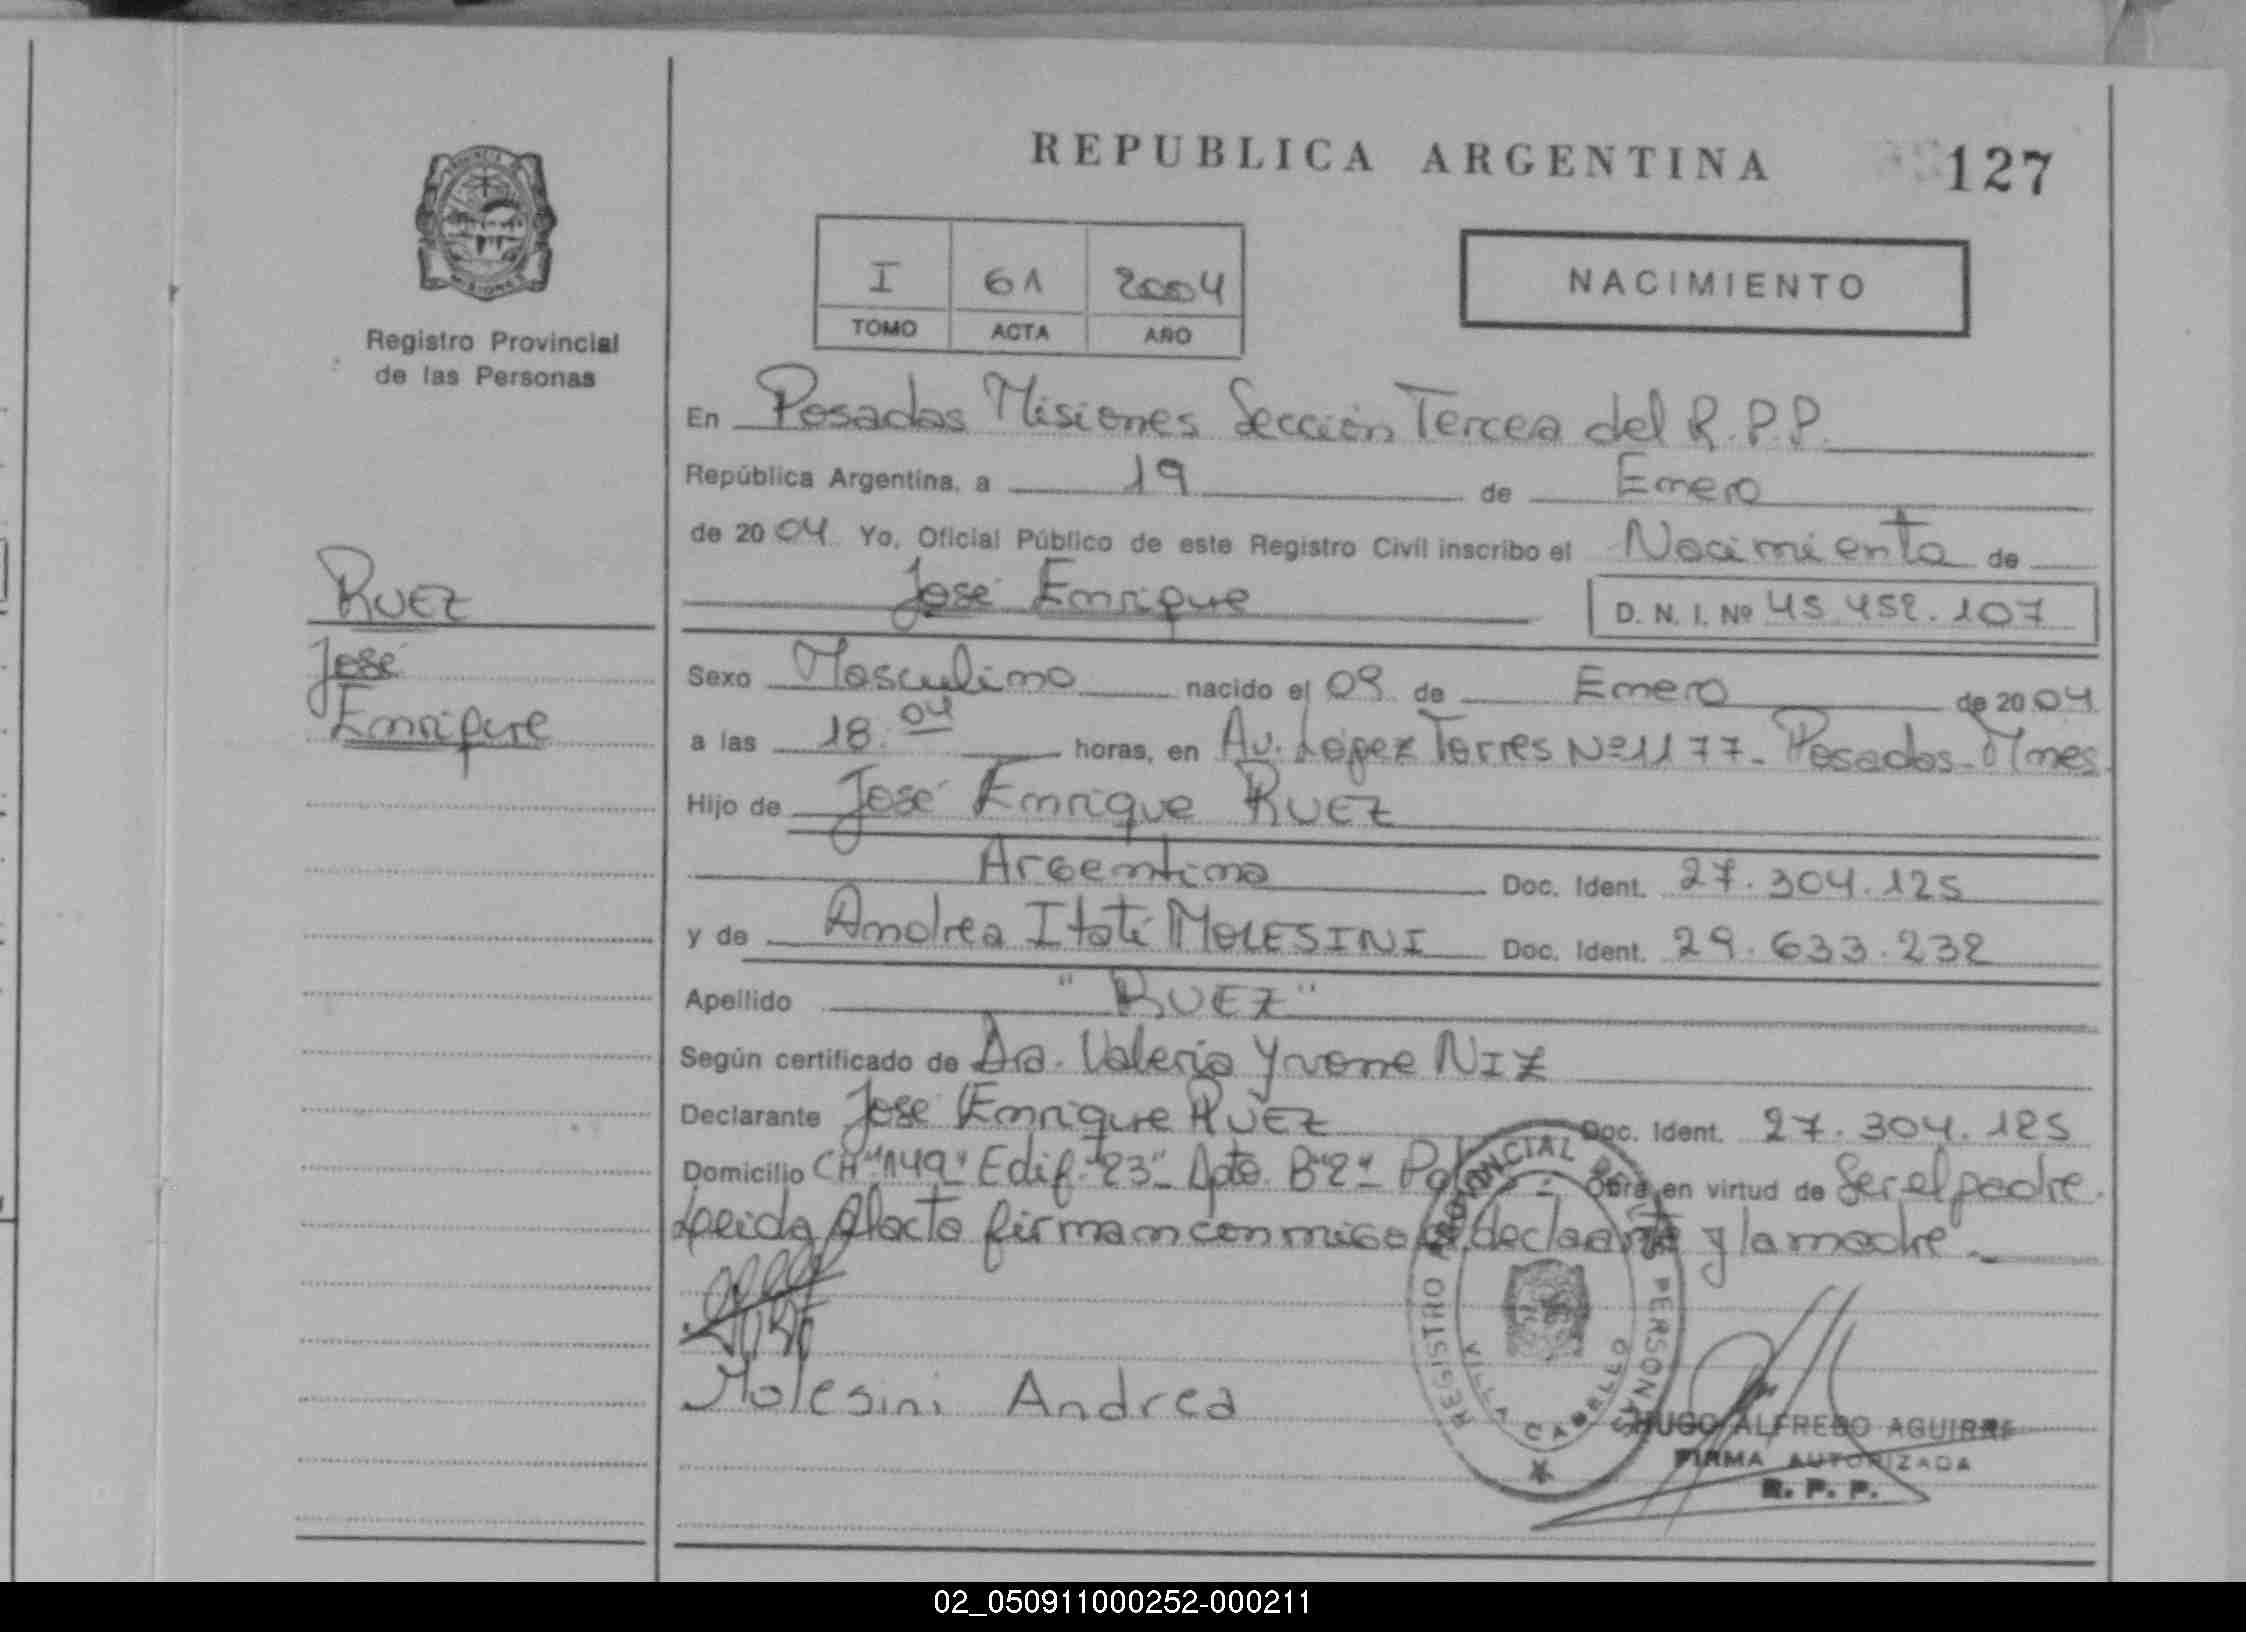 REPUBLICA ARGENTINA
127
I 61 2004
TOMO ACTA AÑO
NACIMIENTO
Registro Provincial
de las Personas
RUEZ
José
Enrique
En Posadas Misiones Sección Tercera del R.P.P.
República Argentina, a 19 de Enero
de 2004 Yo, Oficial Público de este Registro Civil inscribo el Nacimiento de
José Enrique D. N. I. Nº 45.452.107
Sexo Masculino nacido el 09 de Enero de 2004
a las 18.04 horas, en Av. López Torres Nº 1177 - Posadas - Mnes.
Hijo de José Enrique RUEZ
Argentino Doc. Ident. 27.304.125
y de Andrea Itatí MOLESINI Doc. Ident. 29.633.232
Apellido "RUEZ"
Según certificado de Dra. Valeria Yvonne NIZ
Declarante José Enrique RUEZ Doc. Ident. 27.304.125
Domicilio CH "149" Edif. "23" Dpto. B"2" Obra en virtud de Ser el padre.
Leida el acta firman conmigo el declarante y la madre.
Molesini Andrea
REGISTRO PROVINCIAL DE LAS PERSONAS
VILLA CABELLO
HUGO ALFREDO AGUIRRE
FIRMA AUTORIZADA
R. P. P.
02_050911000252-000211